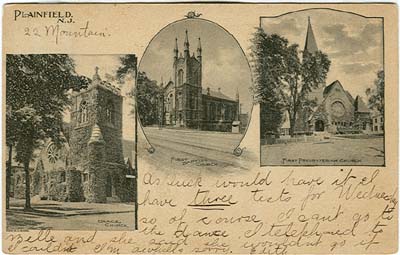 PLAINFIELD,
N.J.
22 Mountain.
FIRST
CHURCH
FIRST PRESBYTERIAN CHURCH
GRACE
CHURCH
As luck would have it I
have three tests for Wednesday
so of course I can't go to
the dance. I telephoned to
Belle and she said she wouldn't go if
I couldn't. I'm awfully sorry. Edith